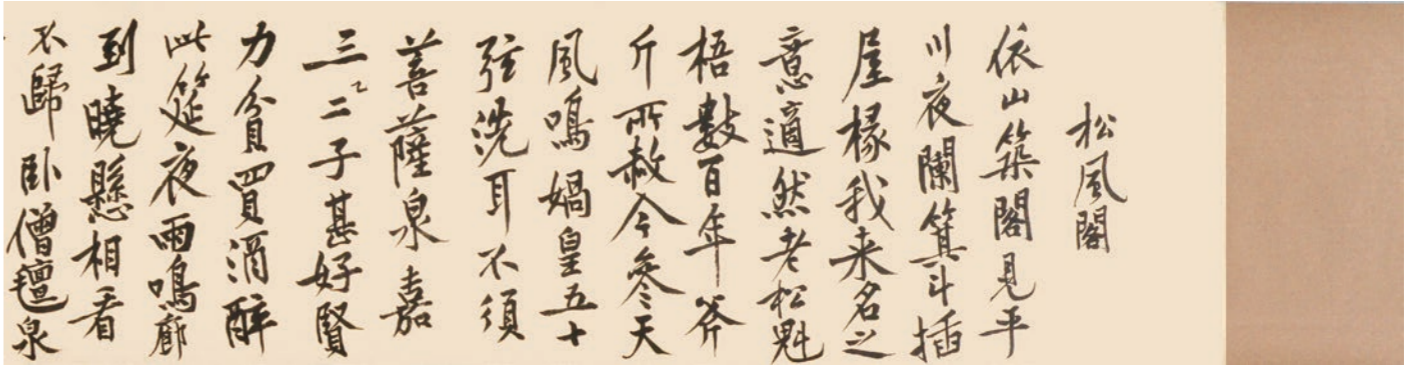 松風閣
依山築閣見平
川夜闌箕斗插
屋椽我来名之
意適然老松魁
梧數百年斧
斤所赦今參天
風鳴媧皇五十
弦洗耳不須
菩薩泉嘉
三二子甚好賢
力貧買酒醉
此筵夜雨鳴廊
到曉懸相看
不歸卧僧氈泉